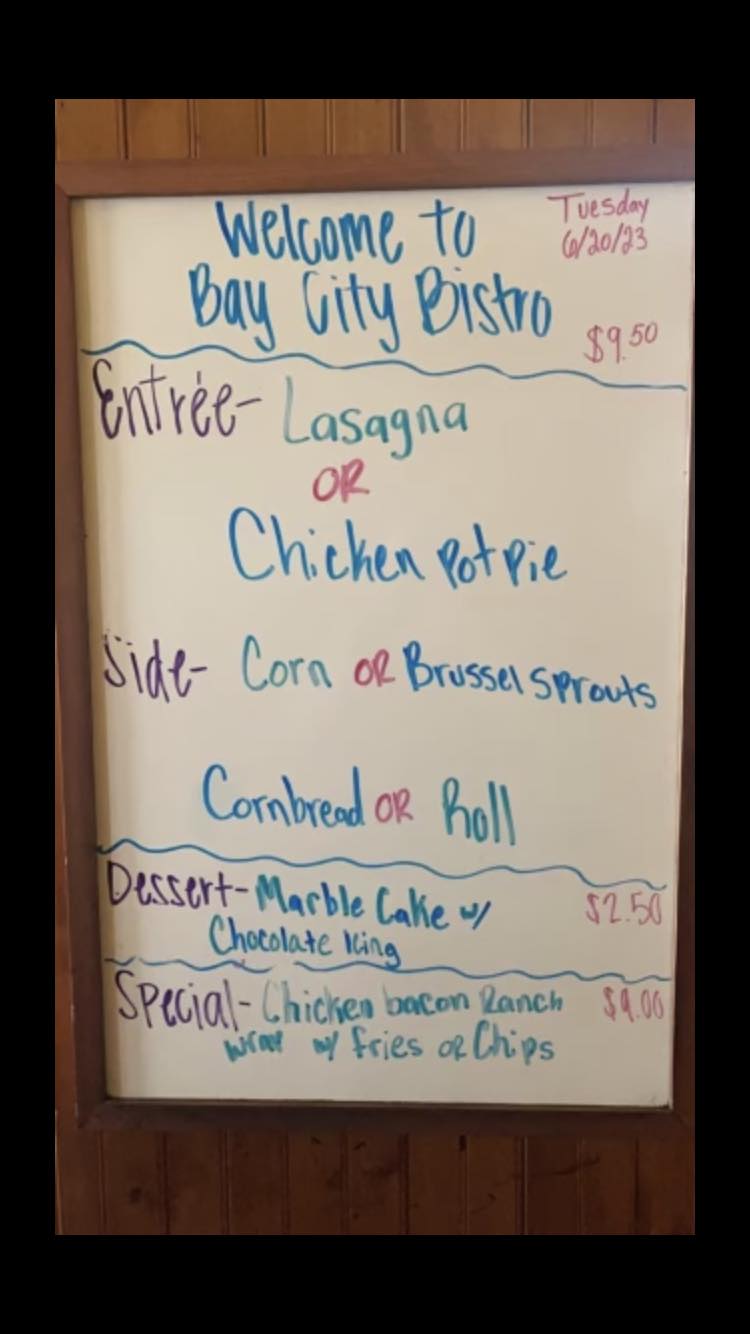 Welcome to
Tuesday
6/20/23
Bay City Bistro
$9.50
Entrée- Lasagna
OR
Chicken Pot Pie
Side- Corn OR Brussel Sprouts
Cornbread OR Roll
Dessert- Marble Cake w/
$2.50
Chocolate Icing
Special- Chicken bacon Ranch
$9.00
wrap w/ fries or Chips